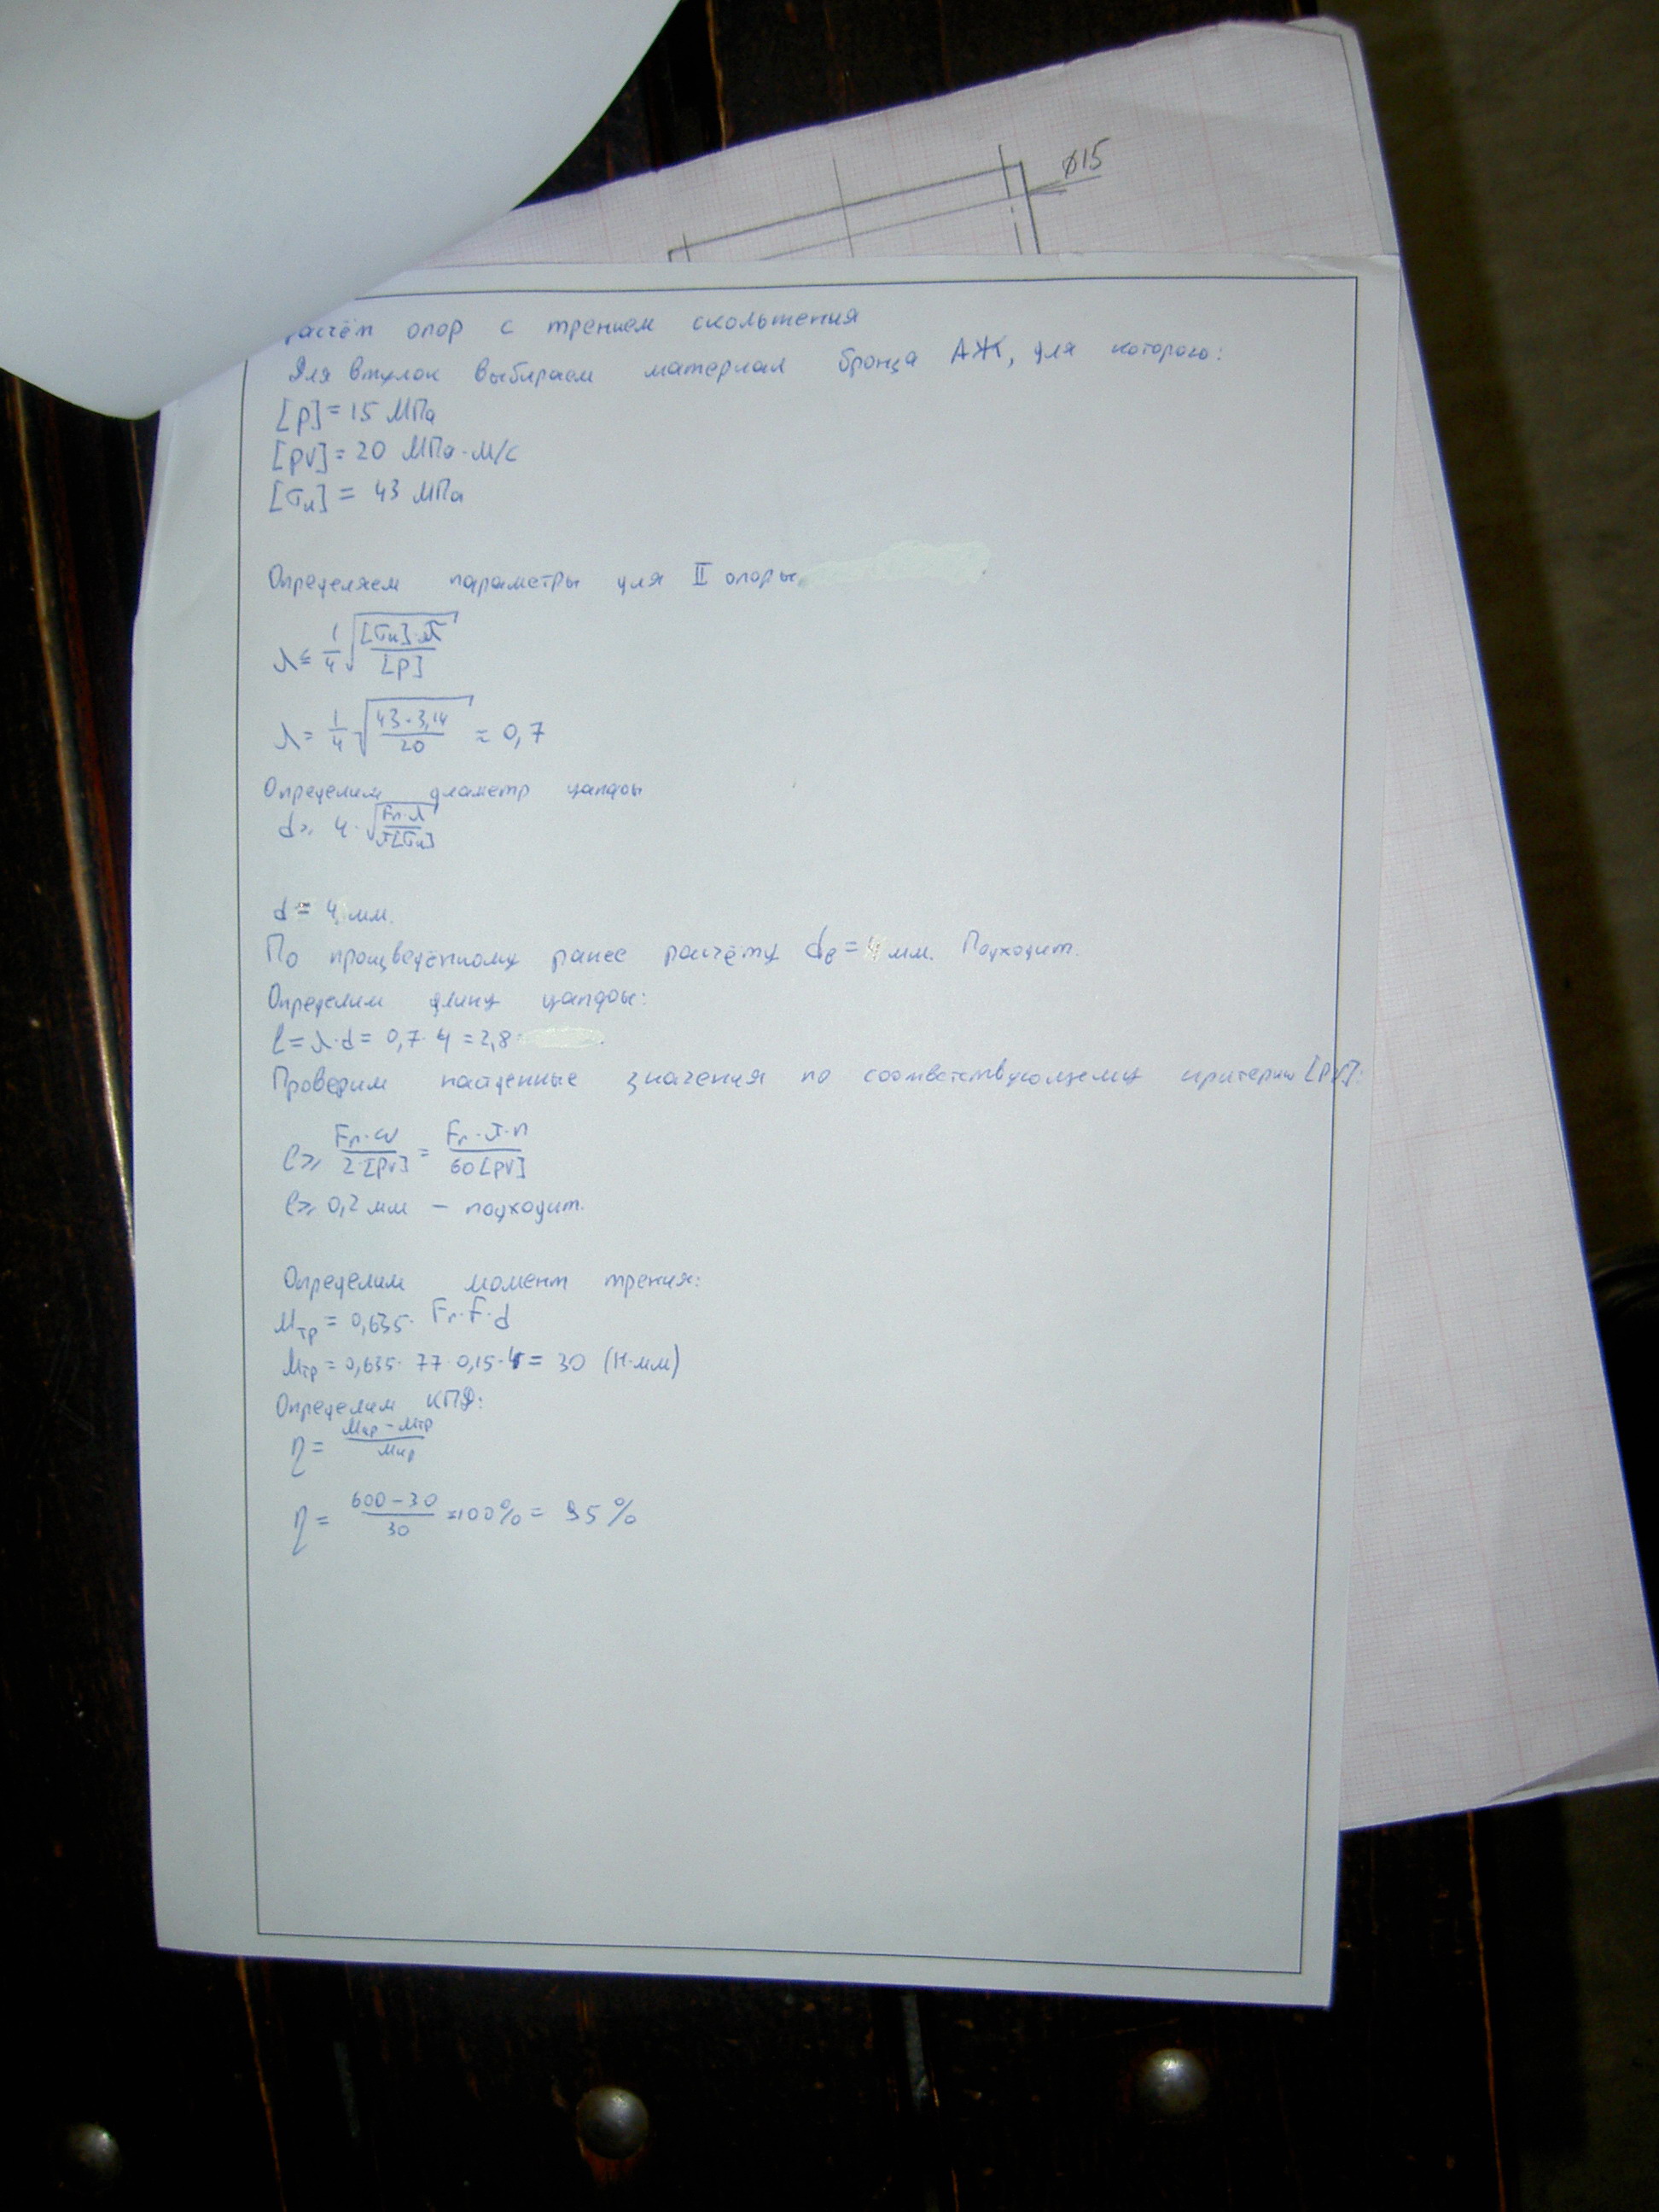 ⌀15
расчёт опор с трением скольжения
Для втулок выбираем материал бронза АЖ, для которого:
[p] = 15 МПа
[pv] = 20 МПа·м/с
[σи] = 43 МПа
Определяем параметры для II опоры
λ ≤ 1/4 √([σи]·π / [p])
λ = 1/4 √(43·3,14 / 20) ≈ 0,7
Определим диаметр цапфы
d ≥ 4·√(Fr·λ / π[σи])
d = 4 мм.
По произведённому ранее расчёту dв = 4 мм. Подходит.
Определим длину цапфы:
l = λ·d = 0,7·4 = 2,8
Проверим найденные значения по соответствующему критерию [pv]:
l ≥ Fr·ω / 2·[pv] = Fr·π·n / 60[pv]
l ≥ 0,2 мм – подходит.
Определим момент трения:
Mтр = 0,635· Fr·F·d
Mтр = 0,635· 77·0,15·4 = 30 (Н·мм)
Определим КПД:
η = Mкр - Mтр / Mкр
η = 600 - 30 / 30 ·100% = 95%